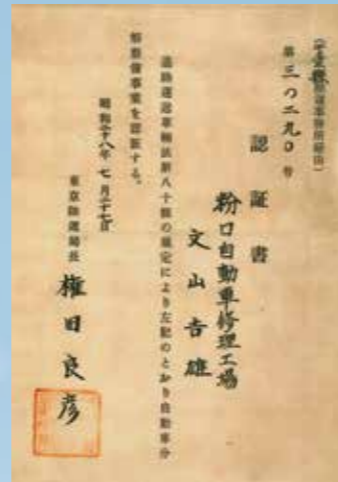 第三〇二九〇号
認証書
粉口自動車修理工場
文山吉雄
道路運送車輌法第八十條の規定により左記のとおり自動車分
解整備事業を認証する。
昭和廿八年七月二十七日
東京陸運局長
権田良彦